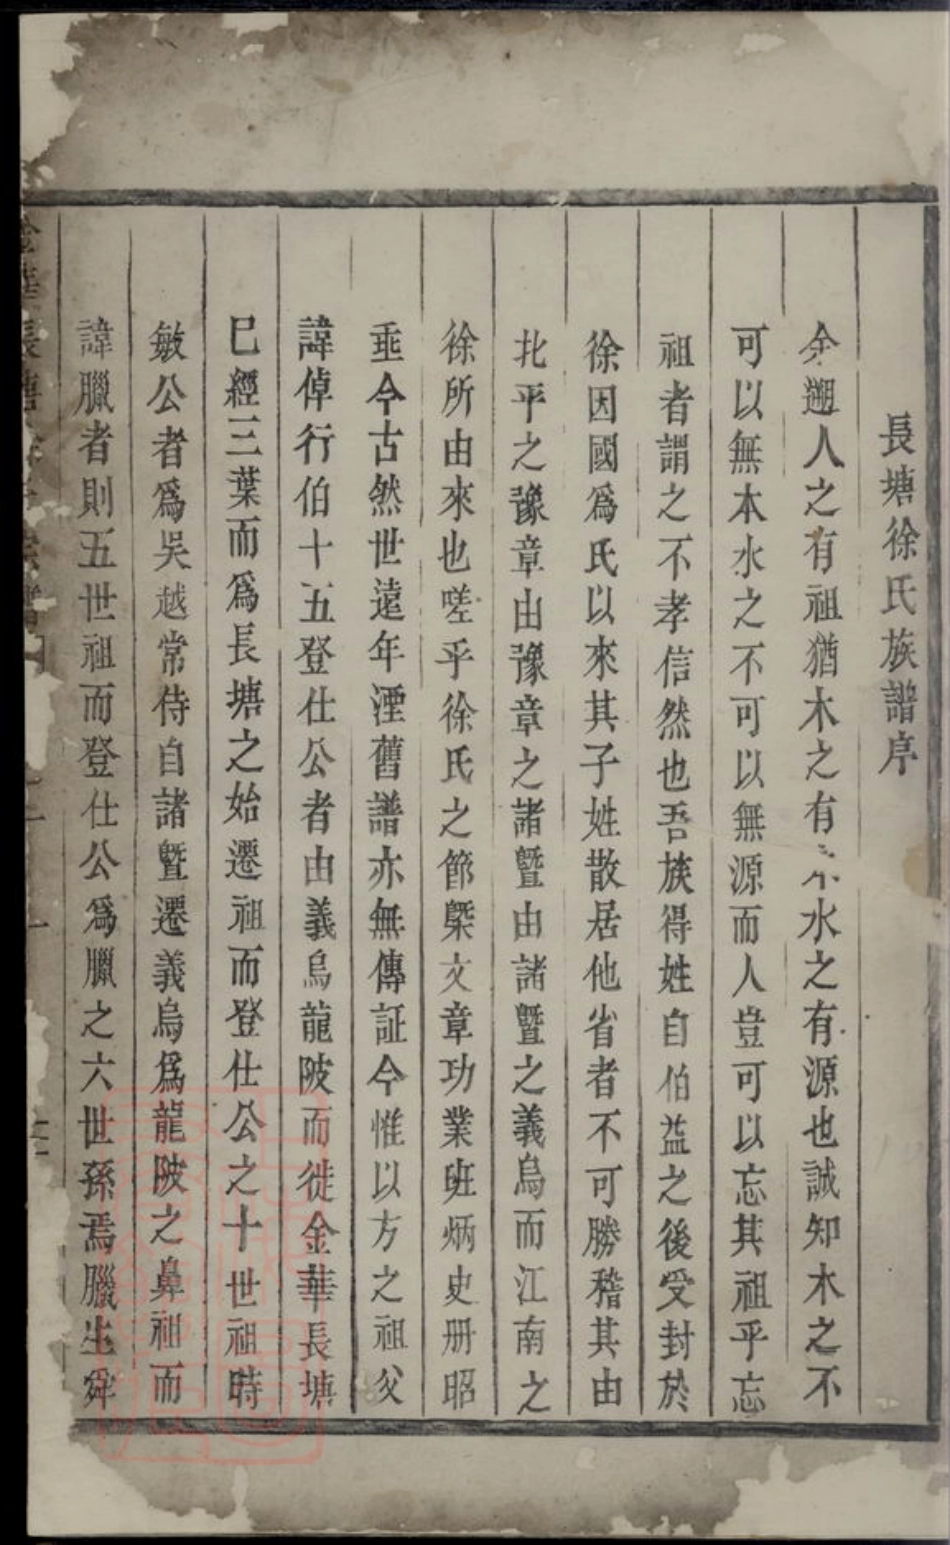 長塘徐氏族譜序
余遡人之有祖猶木之有本水之有源也誠知木之不
可以無本水之不可以無源而人豈可以忘其祖乎忘
祖者謂之不孝信然也吾族得姓自伯益之後受封於
徐因國爲氏以來其子姓散居他省者不可勝稽其由
北平之豫章由豫章之諸暨由諸暨之義烏而江南之
徐所由來也嗟乎徐氏之節槩文章功業班炳史册昭
垂今古然世遠年湮舊譜亦無傳証今惟以方之祖父
諱倬行伯十五登仕公者由義烏龍陂而徙金華長塘
巳經三葉而爲長塘之始遷祖而登仕公之十世祖時
敏公者爲吳越常侍自諸暨遷義烏爲龍陂之鼻祖而
諱臘者則五世祖而登仕公爲臘之六世孫焉臘生
金華長塘徐